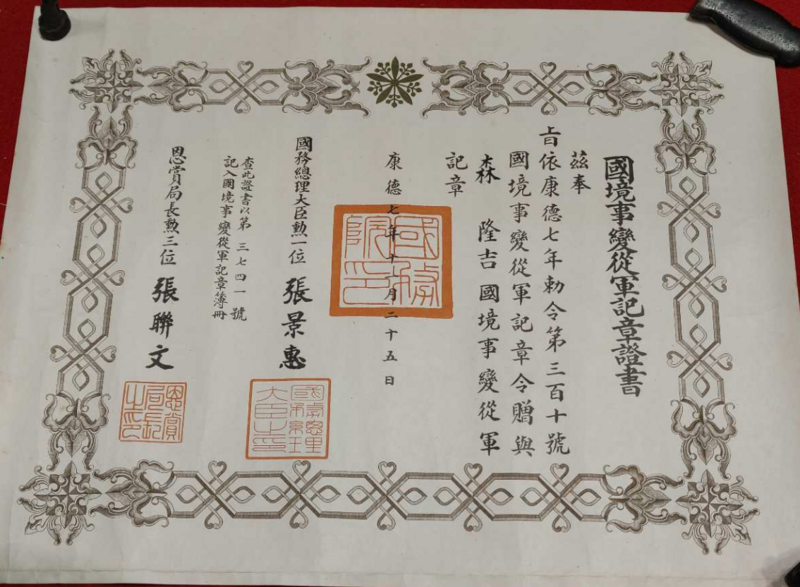 國境事變從軍記章證書
茲奉
旨依康德七年勅令第三百十號
國境事變從軍記章令贈與
森 隆吉 國境事變從軍
記章
康德七年十一月二十五日
國務院印
國務總理大臣勳一位 張景惠
國務總理大臣之印
查此證書以第三七四一號
記入國境事變從軍記章簿冊
恩賞局長勳三位 張聯文
恩賞局長之印